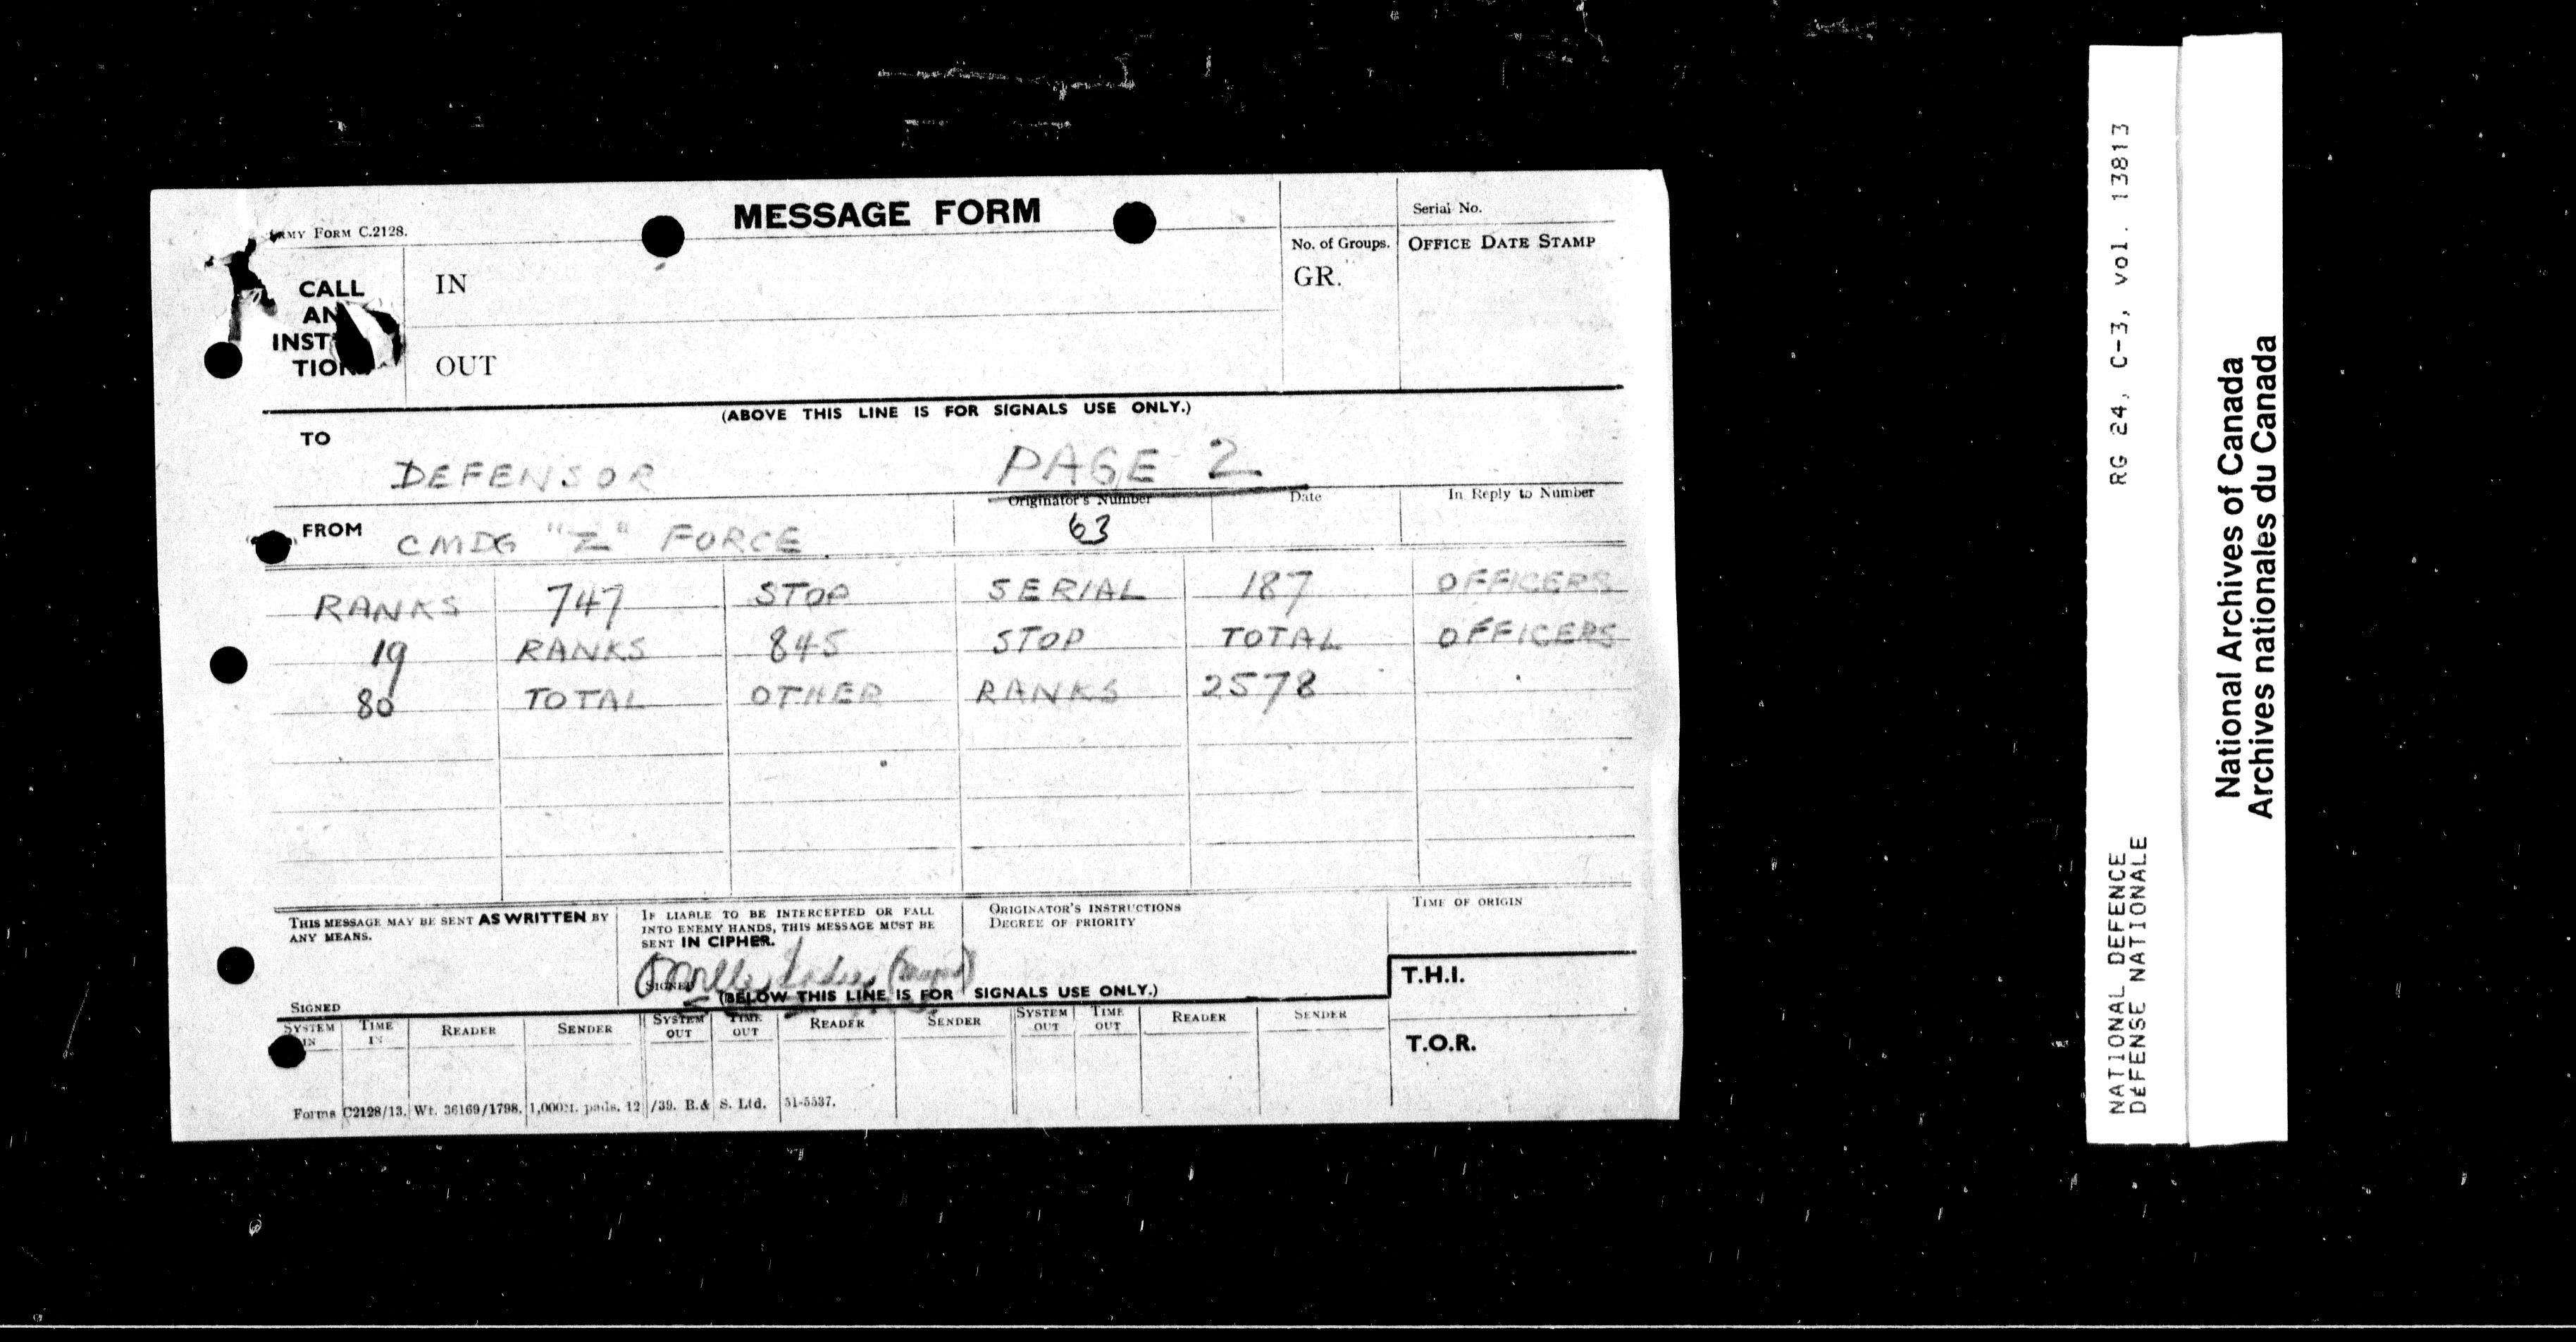 MESSAGE FORM
ARMY FORM C.2128.
Serial No.
No. of Groups.
GR.
OFFICE DATE STAMP
CALL
AN
INST
TION
IN
OUT
(ABOVE THIS LINE IS FOR SIGNALS USE ONLY.)
TO
DEFENSOR
PAGE 2
FROM
CMDG "Z" FORCE
Originator's Number
63
Date
In Reply to Number
RANKS 747 STOP SERIAL 187 OFFICERS
19 RANKS 845 STOP TOTAL OFFICERS
80 TOTAL OTHER RANKS 2578
THIS MESSAGE MAY BE SENT AS WRITTEN BY
ANY MEANS.
SIGNED
IF LIABLE TO BE INTERCEPTED OR FALL
INTO ENEMY HANDS, THIS MESSAGE MUST BE
SENT IN CIPHER.
SIGNED
ORIGINATOR'S INSTRUCTIONS
DEGREE OF PRIORITY
TIME OF ORIGIN
(BELOW THIS LINE IS FOR SIGNALS USE ONLY.)
T.H.I.
SYSTEM IN TIME IN READER SENDER SYSTEM OUT TIME OUT READER SENDER SYSTEM OUT TIME OUT READER SENDER
T.O.R.
Forms C2128/13. Wt. 36169/1798. 1,000M. pads. 12/39. B.& S. Ltd. 51-5537.
RG 24, C-3, vol. 13813
NATIONAL DEFENCE
DÉFENSE NATIONALE
National Archives of Canada
Archives nationales du Canada